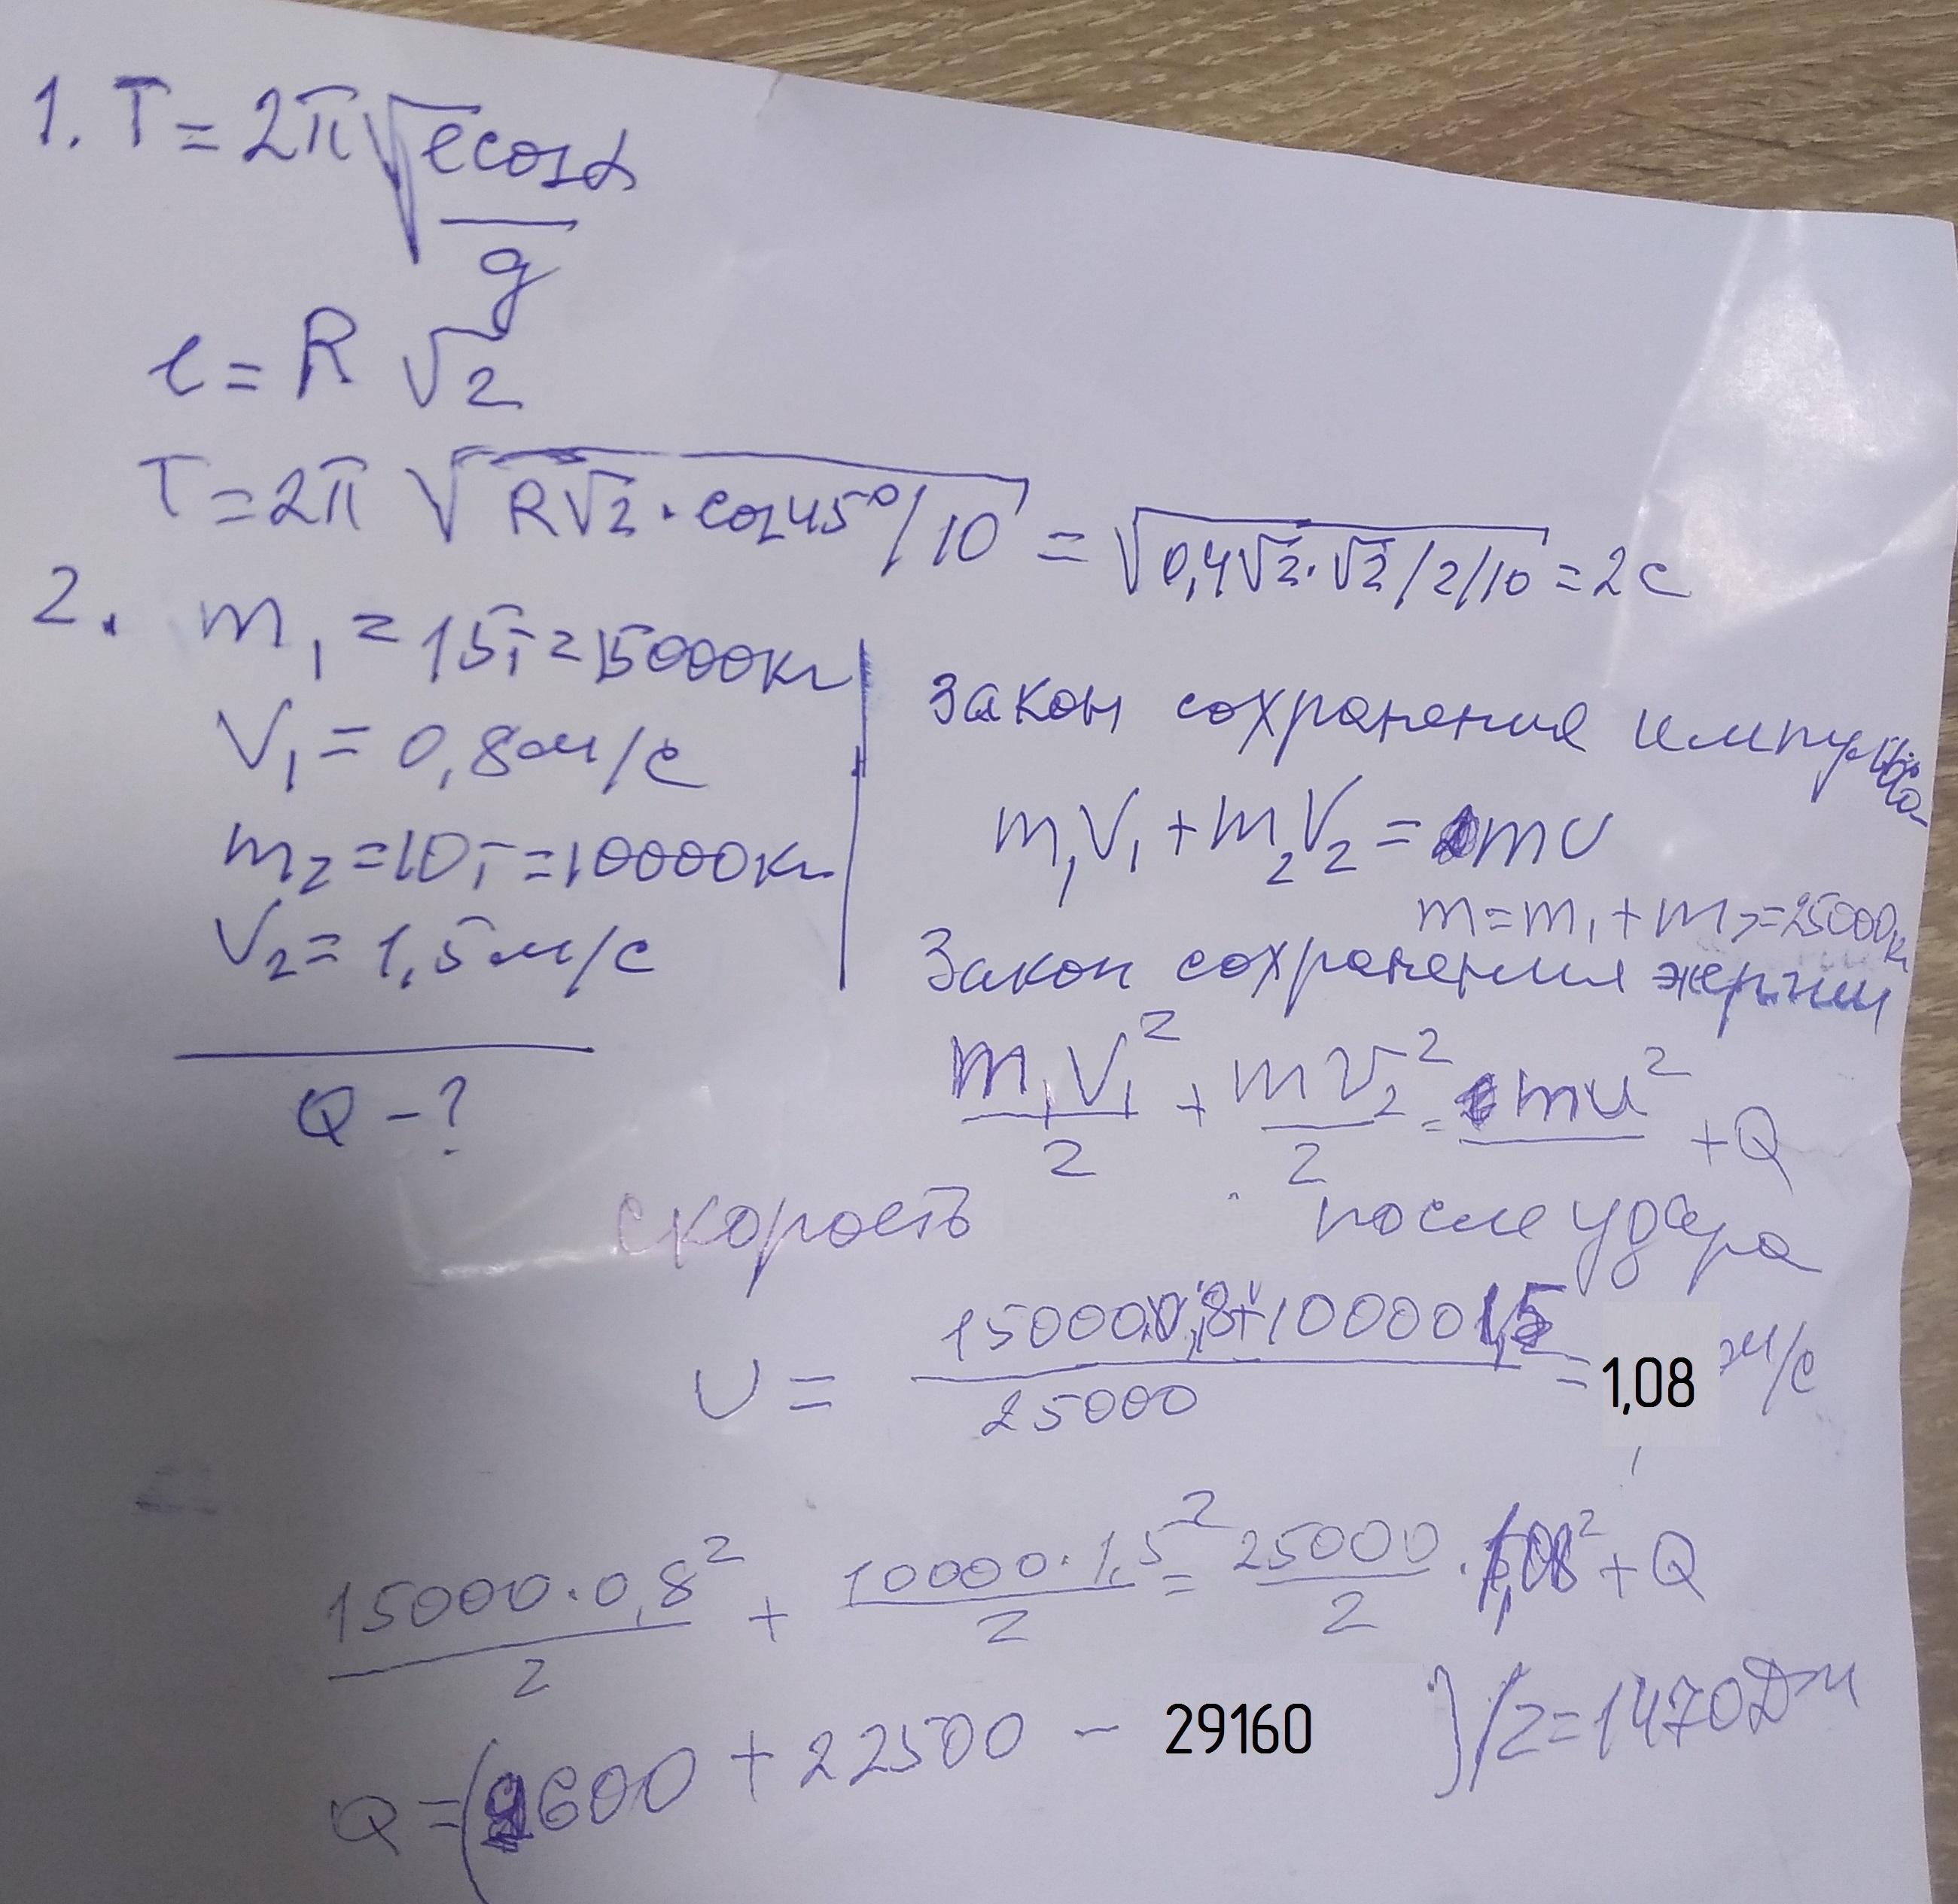 1. T = 2π √(ℓcosα / g)
ℓ = R √2
T = 2π √(R√2 · cos45°/10) = √(0,4√2·√2/2/10) = 2с
2. m₁ = 15т = 15000кг
V₁ = 0,8м/с
m₂ = 10т = 10000кг
V₂ = 1,5м/с
Q - ?
Закон сохранения импульса
m₁V₁ + m₂V₂ = mU
m = m₁ + m₂ = 25000кг
Закон сохранения энергии
m₁V₁²/2 + mV₂²/2 = mu² + Q
скорость после удара
U = 15000·0,8+10000·1,5 / 25000 = 1,08 м/с
15000·0,8²/2 + 10000·1,5²/2 = 25000/2 · 1,08² + Q
Q = (9600 + 22500 - 29160 )/2 = 1470Дж